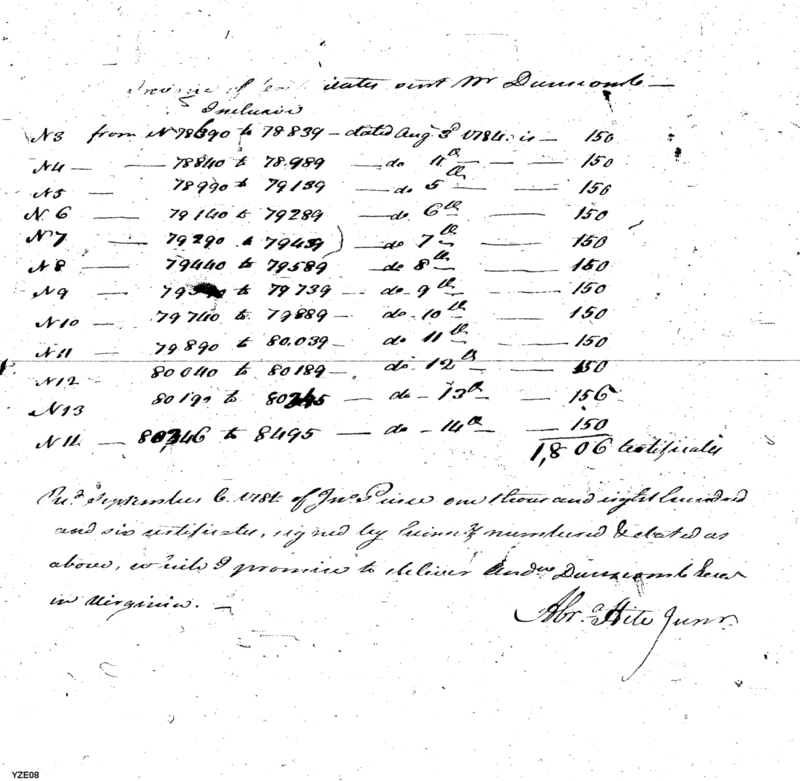 Invoice of Certificates sent Mr Dunscomb —
Inclusive
N3 from N 78690 to 78839 — dated Aug 3d 1784 is — 150
N4 — — 78840 to 78.989 — do 4th — — 150
N5 — 78990 to 79139 — do 5th — 150
N. 6 — 79140 to 79289 — do 6th — 150
N7 — 79290 a 79439 ) — do 7th — 150
N8 — 79440 to 79589 — do 8th — 150
N9 — 79590 to 79739 — do 9th — 150
N10 — 79740 to 79889 — do 10th — 150
N11 — 79890 to 80.039 — do 11th — 150
N12 80040 to 80189 — do 12th — 150
N13 80190 to 80345 — do 13th — 156
N14 — 80346 to 8495 — do — 14th — 150
1,806 Certificates
Recd September 6. 1784 of Jno Pierce one thousand eight hundred
and six certificates, signed by numbered & dated as
above, which I promise to deliver Andw Dunscomb Esqr
in Virginia. —
Abrm Hite Junr
YZE08